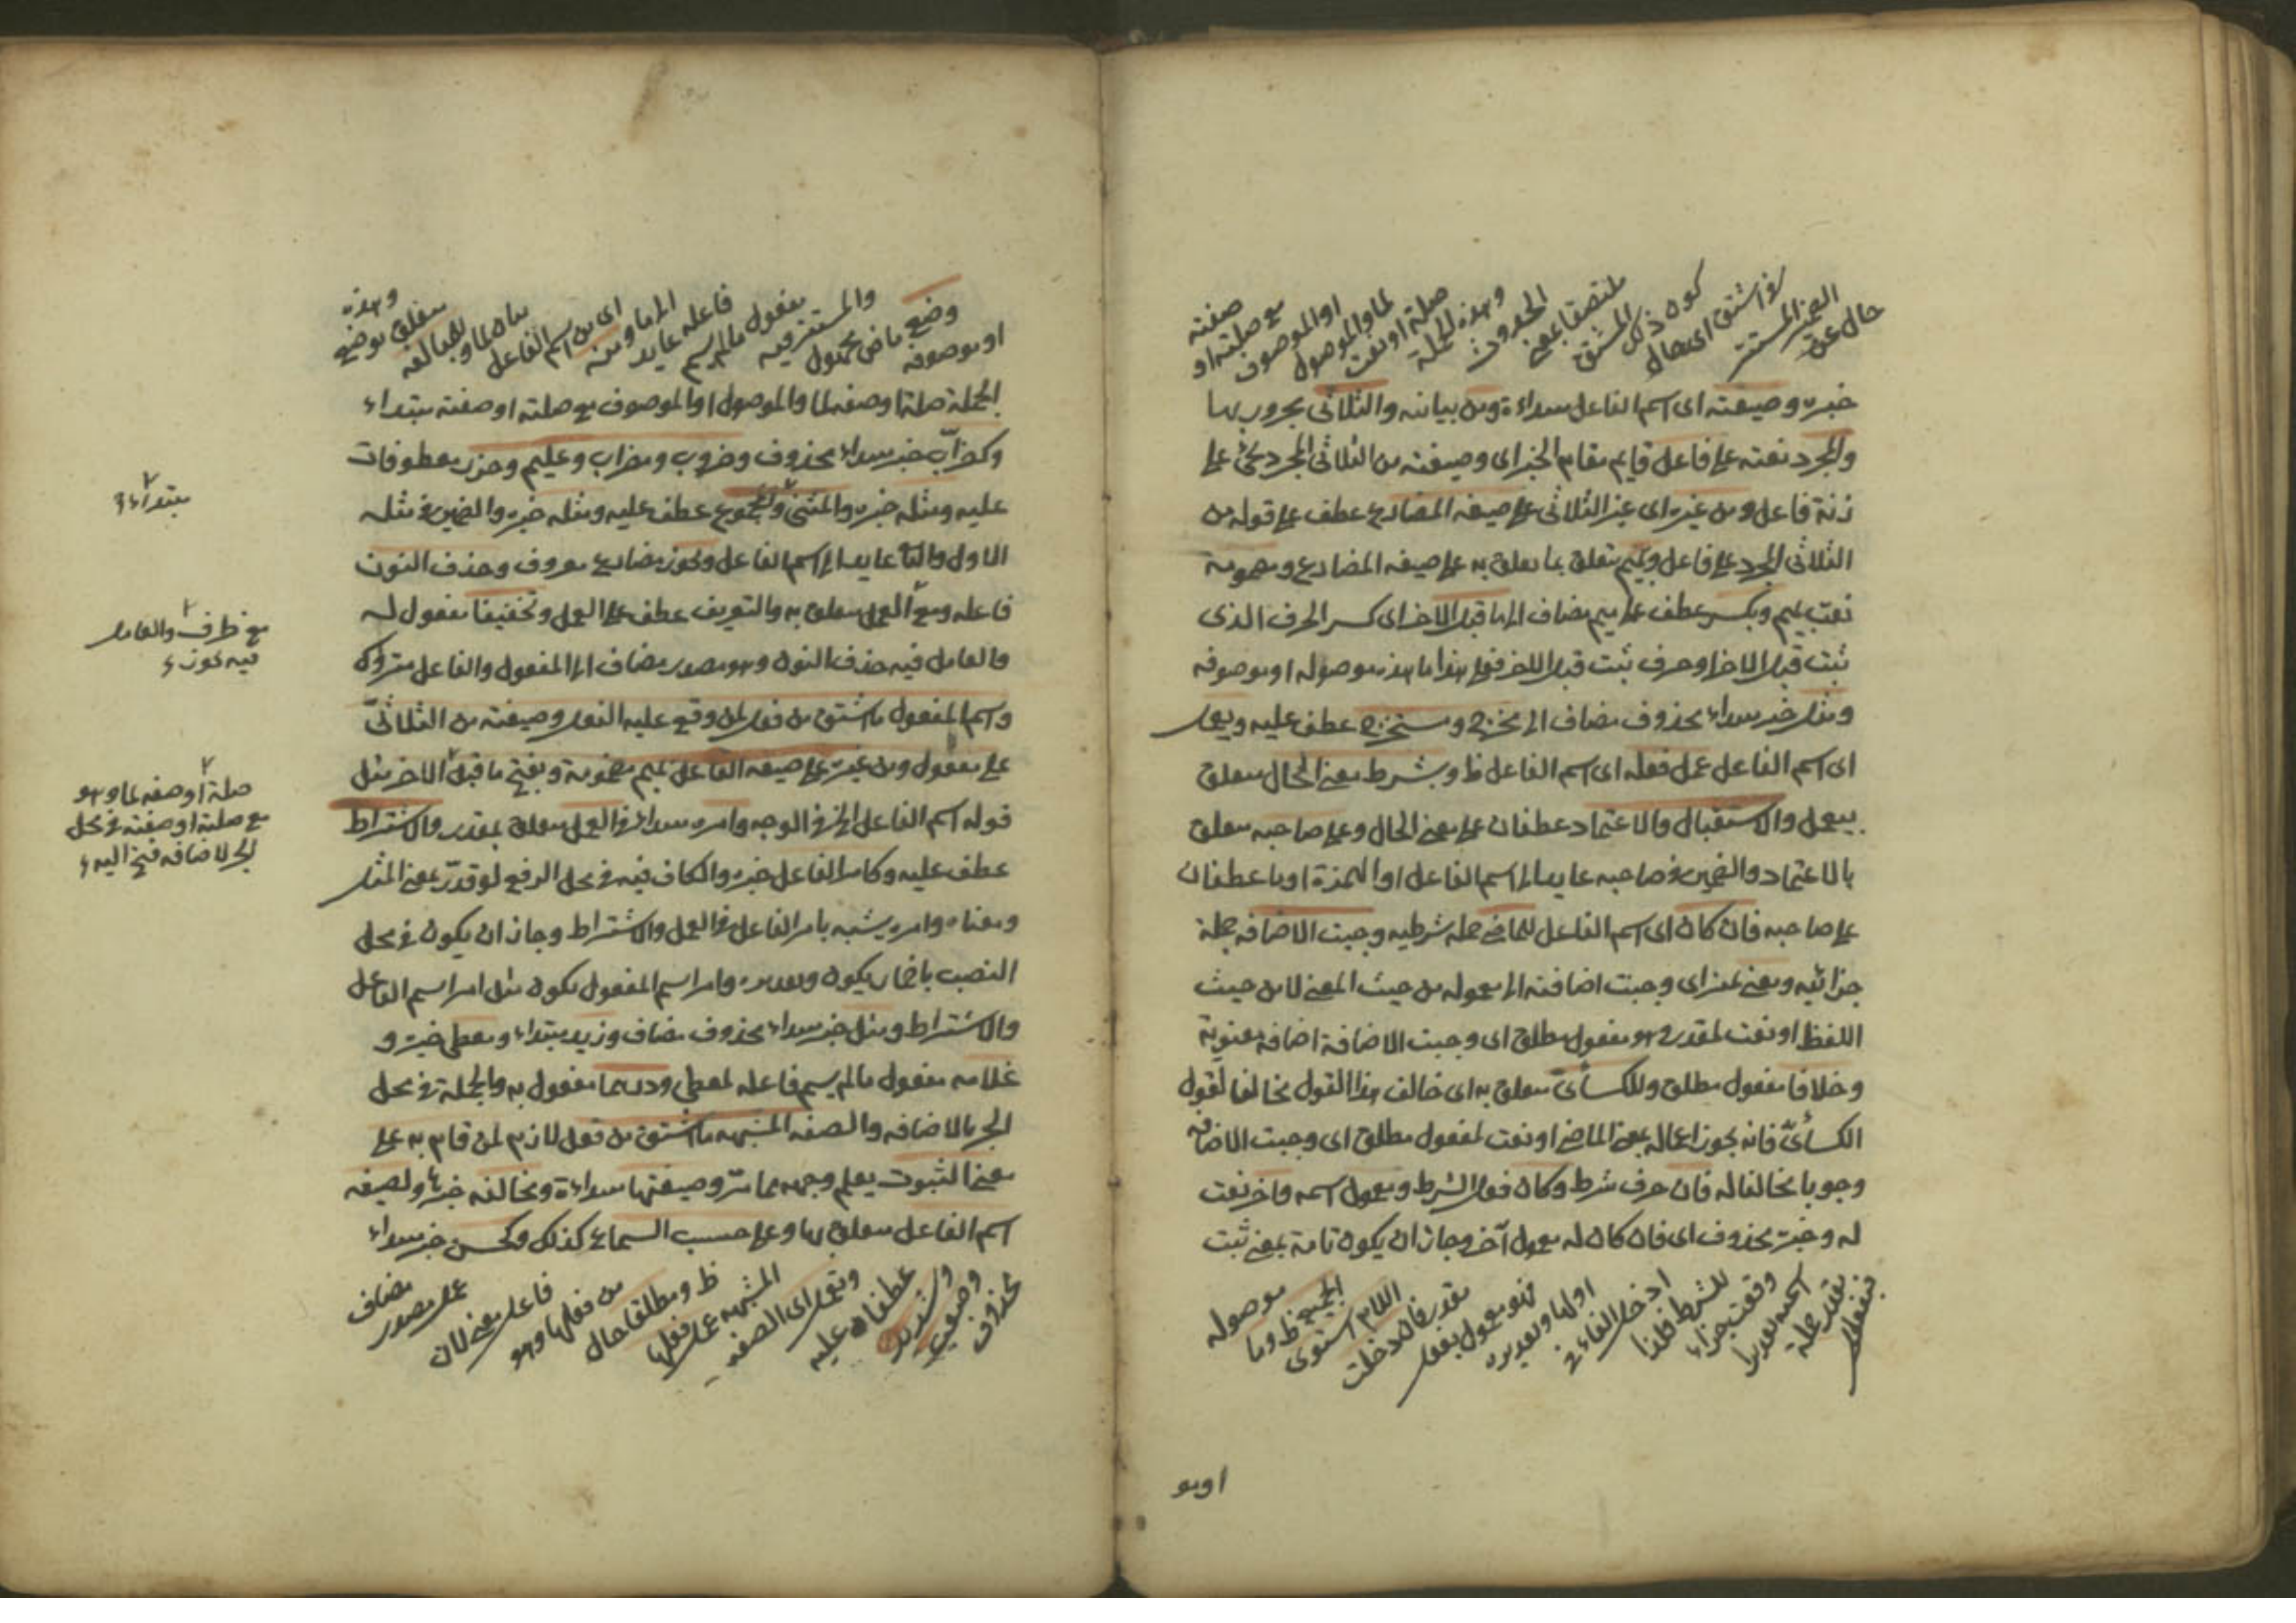 حال عن
الضمير المستتر
في اشتق اى حال
كون ذلك
المشتق
ملتصقا بمعنى
الحدوث
وهذه الجملة
صلة او نعت
لما والموصول
او الموصوف
مع صلته او
صفته
خبره وصيغته اى اسم الفاعل مبتداءة ومن بيانية والثلاثى مجرور بها
والمجرد نعته على فاعل قايم مقام الخبر اى وصيغته من الثلاثى المجرد تجئ على
زنة فاعل ومن غيره اى غير الثلاثى على صيغه المضارع عطف على قوله من
الثلاثى المجرد على فاعل وبميم متعلق بما تعلق به على صيغه المضارع ومضمومة
نعت بميم وبكسر عطف على ميم مضاف الى ما قبل الاخر اى كسر الحرف الذى
ثبت قبل الاخر او حرف ثبت قبل الاخر فعلى هذا ما هذه موصوله او موصوفه
ومثل خبر مبتداء محذوف مضاف الى مخرج ومستخرج عطف عليه ويعمل
اى اسم الفاعل عمل فعله اى اسم الفاعل ظ وبشرط معنى الحال متعلق
بيعمل والاستقبال والاعتماد عطفان على معنى الحال وعلى صاحبه متعلق
بالاعتماد والضمير في صاحبه عايد الى اسم الفاعل او الهمزة او ما عطفان
على صاحبه فان كان اى اسم الفاعل للماضى جمله شرطيه وجبت الاضافه جملة
جزائيه ومعنى تميز اى وجبت اضافته الى معموله من حيث المعنى لا من حيث
اللفظ او نعت لمقدر وهو مفعول مطلق اى وجبت الاضافة اضافه معنوية
وخلافا مفعول مطلق وللكسائى متعلق به اى خالف هذا القول مخالفا لقول
الكسائى فانه يجوز اعماله بمعنى الماضى او نعت لمفعول مطلق اى وجبت الاضافه
وجوبا مخالفا له فان حرف شرط وكان فعل الشرط ومعمول اسمه واخر نعت
له وخبره محذوف اى فان كان له معمول آخر وجاز ان يكون تامة بمعنى ثبت
فبفعل
مقدر جملة
اسميه تقديرا
وقعت جزاء
للشرط فلذا
ادخل الفاء في
اولها وتقديره
فهو معمول بفعل
مقدر فان دخلت
اللام استوى
الجميع ظ وما
موصوله
او مو
او موصوفه
وضع ماض مجهول
والمستتر فيه
مفعول مالم يسم
فاعله عايد
الى ما ومنه
اى من اسم الفاعل
بيان لما و
للمبالغه
متعلق بوضع
وهذه
الجملة صلة او صفه لما والموصول او الموصوف مع صلته او صفته مبتداء
وكضرّاب خبر مبتداء محذوف وضروب ومضراب وعليم وحذر معطوفات
عليه ومثله خبره والمثنى والمجموع عطف عليه ومثله خبره والضمير في مثله
الاول والثانى عايد الى اسم الفاعل ويجوز مضارع معروف وحذف النون
فاعله ومع العمل متعلق به والتعريف عطف على العمل وتخفيفا مفعول له
والعامل فيه حذف النون وهو مصدر مضاف الى المفعول والفاعل متروك
واسم المفعول ما اشتق من فعل لمن وقع عليه الفعل وصيغته من الثلاثىّ
على مفعول ومن غيره على صيغه الفاعل بميم مضمومة وبفتح ما قبل الاخر مثل
قوله اسم الفاعل الخ في الوجه وامره مبتداء في العمل متعلق بمقدر والاشتراط
عطف عليه وكامر الفاعل خبره والكاف فيه في محل الرفع لو قدّر بمعنى المثل
ومعناه وامره يشبه بامر الفاعل في العمل والاشتراط وجاز ان يكون في محل
النصب باضمار يكون وتقديره وامر اسم المفعول يكون مثل امر اسم الفاعل
والاشتراط ومثل خبر مبتداء محذوف مضاف وزيد مبتداء ومعطى خبره و
غلامه مفعول مالم يسم فاعله لمعطى ودرهما مفعول به والجملة في محل
الجر بالاضافه والصفه المشبهه ما اشتق من فعل لازم لمن قام به على
معنى الثبوت يعلم وجهه مما مرّ وصيغتها مبتداءة ومخالفه خبرها ولصيغه
اسم الفاعل متعلق بها وعلى حسب السماع كذلك وكحسن خبر مبتداء
محذوف
وصعب
وشديد
عطفان عليه
وتعمل اى الصفه
المشبهه عمل فعلها
ظ ومطلقا حال
من فعلها وهو
فاعل معنى لان
عمل مصدر
مضاف
مبتداء
مع ظرف والعامل
فيه يجوز
صلة او صفه لما وهو
مع صلته او صفته في محل
الجر لاضافه فتح اليه